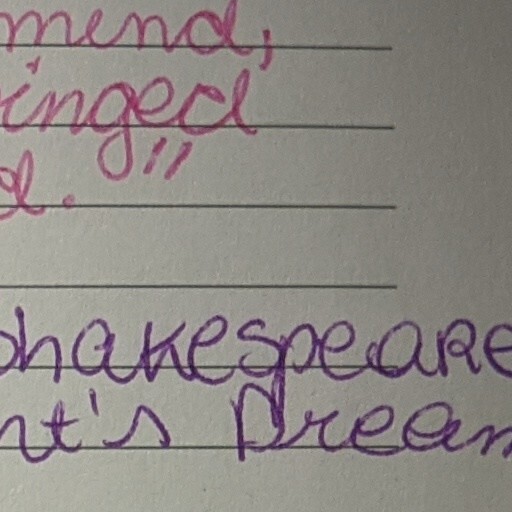 mend;
inged
d."
Shakespeare
nt's Dream